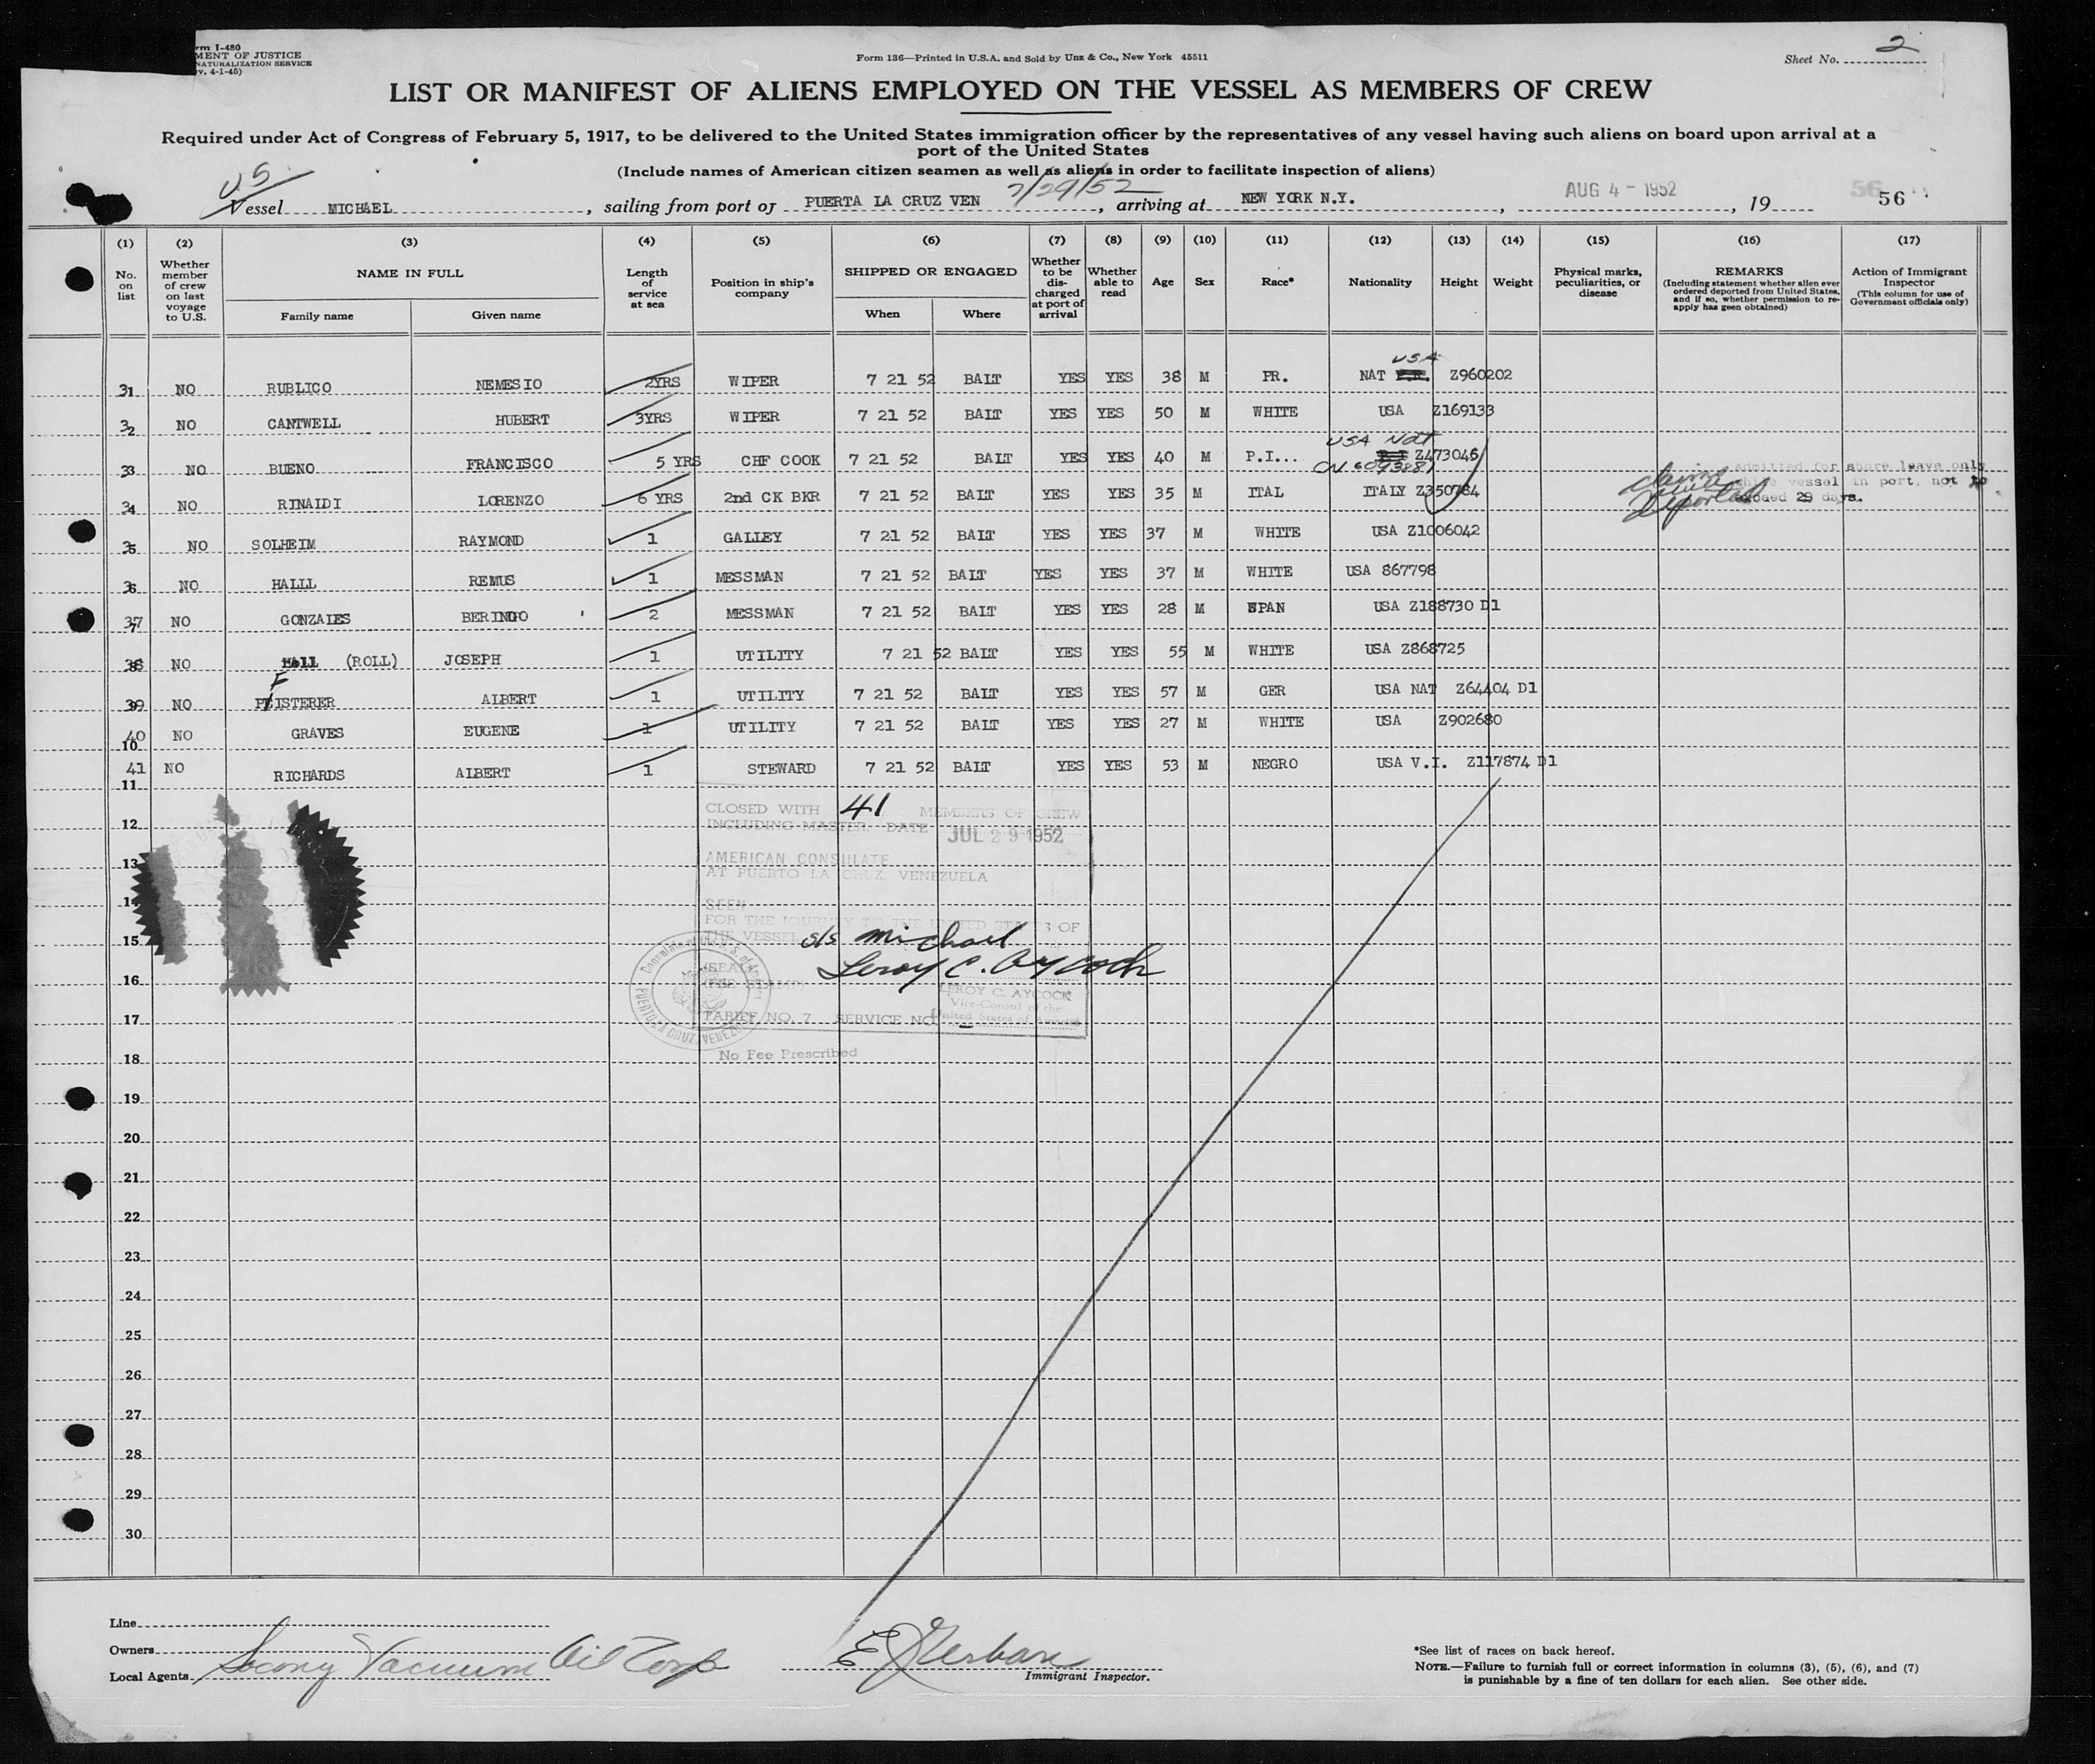 rm I-480
MENT OF JUSTICE
NATURALIZATION SERVICE
v. 4-1-45)
Form 136—Printed in U.S.A. and Sold by Unz & Co., New York 45511
Sheet No. 2
LIST OR MANIFEST OF ALIENS EMPLOYED ON THE VESSEL AS MEMBERS OF CREW
Required under Act of Congress of February 5, 1917, to be delivered to the United States immigration officer by the representatives of any vessel having such aliens on board upon arrival at a
port of the United States
(Include names of American citizen seamen as well as aliens in order to facilitate inspection of aliens)
US 7/29/52
Vessel MICHAEL, sailing from port of PUERTA LA CRUZ VEN, arriving at NEW YORK N.Y., AUG 4 - 1952, 19 56 56
(1) (2) (3) (4) (5) (6) (7) (8) (9) (10) (11) (12) (13) (14) (15) (16) (17)
No. on list
Whether member of crew on last voyage to U.S.
NAME IN FULL
Family name Given name
Length of service at sea
Position in ship's company
SHIPPED OR ENGAGED
When Where
Whether to be discharged at port of arrival
Whether able to read
Age Sex Race* Nationality Height Weight
Physical marks, peculiarities, or disease
REMARKS
(Including statement whether alien ever ordered deported from United States, and if so, whether permission to reapply has geen obtained)
Action of Immigrant Inspector
(This column for use of Government officials only)
USA
31 NO RUBLICO NEMESIO 2YRS WIPER 7 21 52 BALT YES YES 38 M PR. NAT P.R. Z960202
32 NO CANTWELL HUBERT 3YRS WIPER 7 21 52 BALT YES YES 50 M WHITE USA Z169133
USA Nat
33 NO BUENO FRANCISCO 5 YRS CHF COOK 7 21 52 BALT YES YES 40 M P.I... P.I Z473046
CN 6093881
Admitted for shore leave only
while vessel in port, not to
exceed 29 days.
34 NO RINAIDI LORENZO 6 YRS 2nd CK BKR 7 21 52 BALT YES YES 35 M ITAL ITALY Z350784
deported
35 NO SOLHEIM RAYMOND 1 GALLEY 7 21 52 BALT YES YES 37 M WHITE USA Z1006042
36 NO HALLL REMUS 1 MESSMAN 7 21 52 BALT YES YES 37 M WHITE USA 867798
37 NO GONZALES BERINGO 2 MESSMAN 7 21 52 BALT YES YES 28 M SPAN USA Z188730 D1
38 NO (ROLL) JOSEPH 1 UTILITY 7 21 52 BALT YES YES 55 M WHITE USA Z868725
F
39 NO PFISTERER ALBERT 1 UTILITY 7 21 52 BALT YES YES 57 M GER USA NAT Z64404 D1
40 NO GRAVES EUGENE 1 UTILITY 7 21 52 BALT YES YES 27 M WHITE USA Z902680
10
41 NO RICHARDS ALBERT 1 STEWARD 7 21 52 BALT YES YES 53 M NEGRO USA V.I. Z117874 D1
11
CLOSED WITH 41 MEMBERS OF CREW
12
INCLUDING MASTER. DATE JUL 29 1952
AMERICAN CONSULATE
13
AT PUERTO LA CRUZ, VENEZUELA
14
SEEN
FOR THE JOURNEY TO THE UNITED STATES OF
15
THE VESSEL s/s Michael
Leroy C. Aycock
(SEAL)
16
(FEE STAMP)
LEROY C. AYCOCK
Vice-Consul of the
United States of America
17
TARIFF NO. 7 SERVICE NO. -
PUERTO LA CRUZ, VENEZUELA
18
No Fee Prescribed
19
20
21
22
23
24
25
26
27
28
29
30
Line
Owners
Local Agents Socony Vacuum Oil Corp
Immigrant Inspector.
*See list of races on back hereof.
NOTE.—Failure to furnish full or correct information in columns (3), (5), (6), and (7)
is punishable by a fine of ten dollars for each alien. See other side.